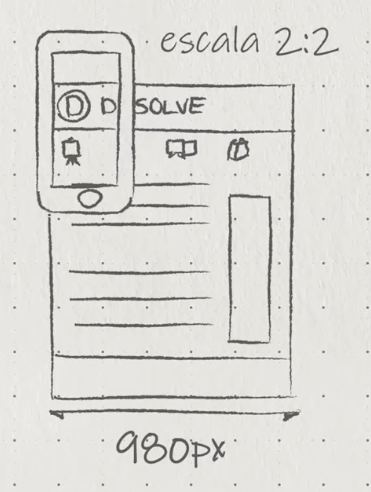 escala 2:2
D D SOLVE
980px